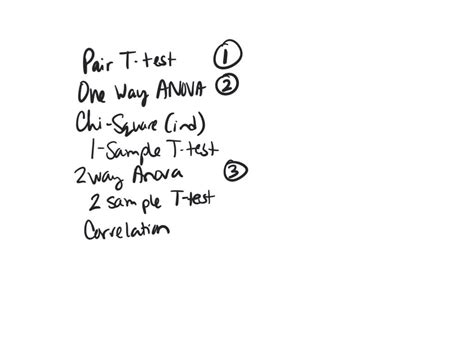 Pair T-test ①
One Way ANOVA ②
Chi-Square (ind)
1-Sample T-test
2 way Anova ③
2 sample T-test
Correlation